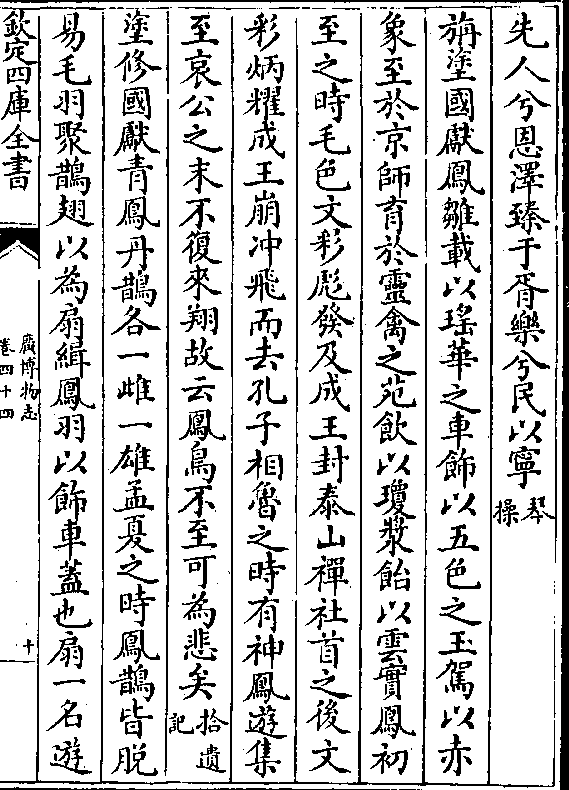 先人兮恩澤臻于胥樂兮民以寧琴操
旃塗國獻鳳雛載以瑤華之車飾以五色之玉駕以赤
象至於京師育於靈禽之苑飲以瓊漿飴以雲實鳳初
至之時毛色文彩彪發及成王封泰山禪社首之後文
彩炳耀成王崩冲飛而去孔子相魯之時有神鳳遊集
至哀公之末不復來翔故云鳳鳥不至可為悲矣拾遺記
塗修國獻青鳳丹鵲各一雌一雄孟夏之時鳳鵲皆脫
易毛羽聚鵲翅以為扇緝鳳羽以飾車蓋也扇一名遊
欽定四庫全書
廣博物志
卷四十四
十